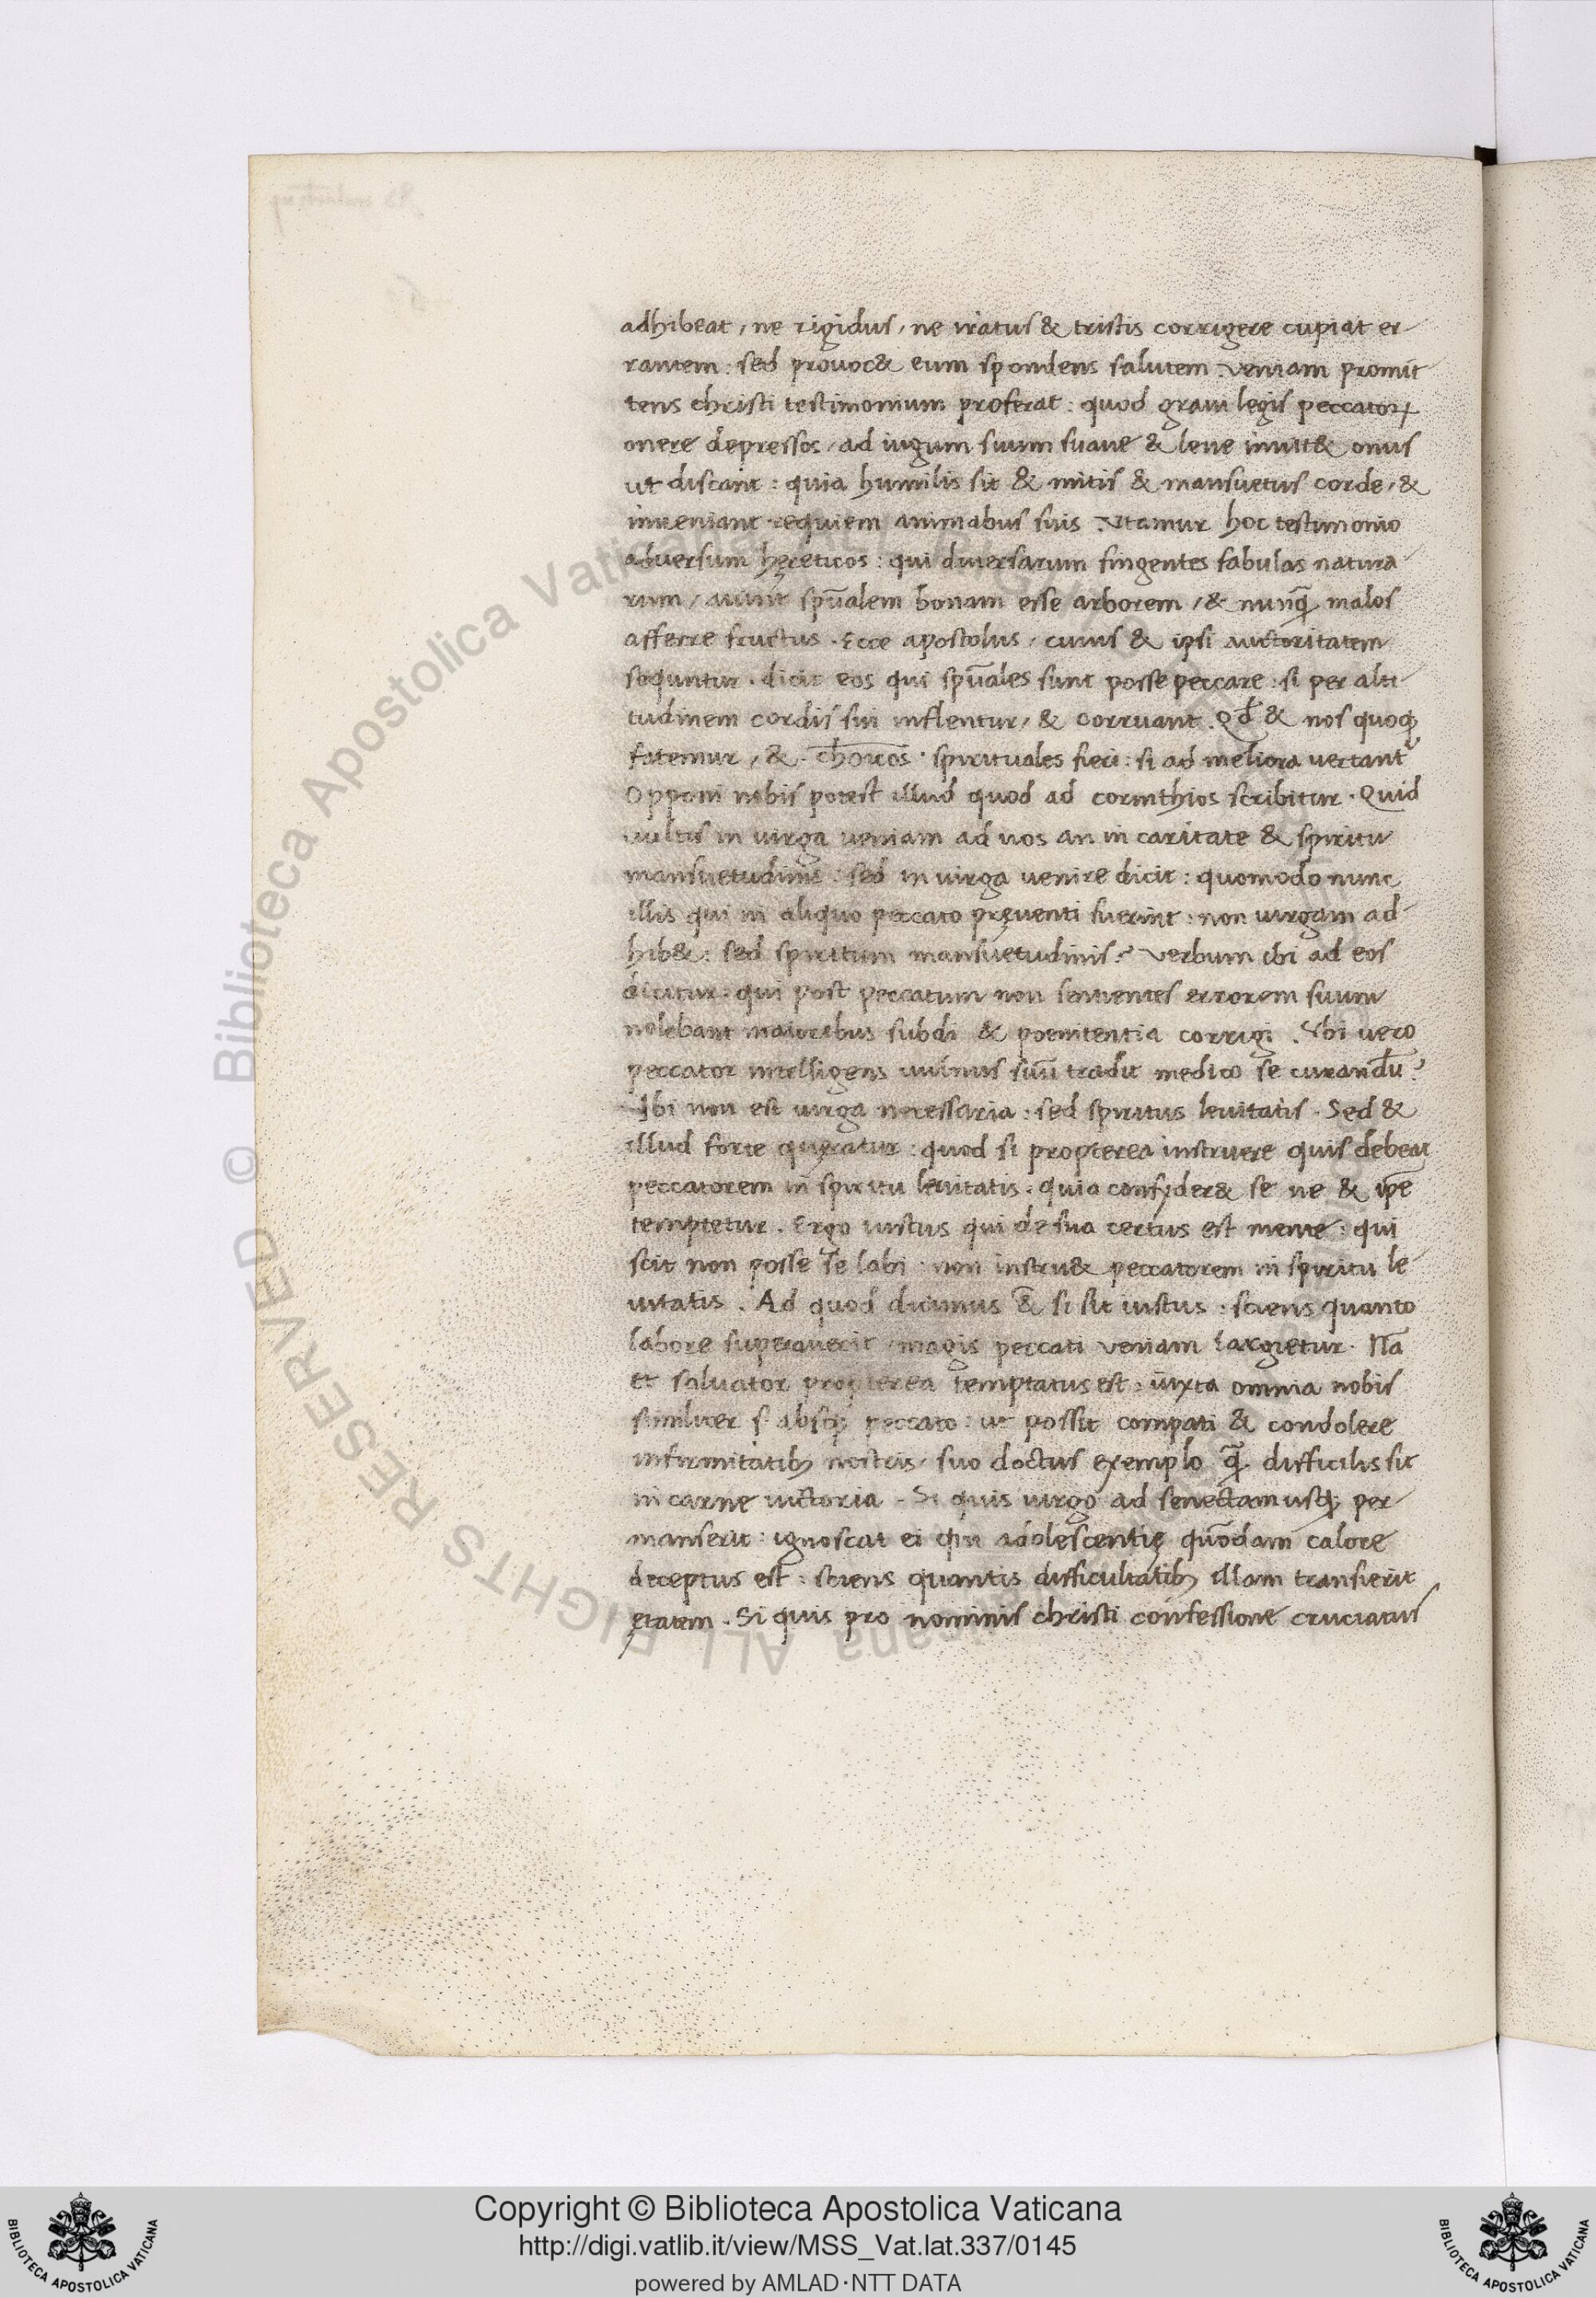 adhibeat, ne rigidus, ne iratus & tristis corrigere cupiat er-
rantem: sed provoc& eum spondens salutem. veniam promit
tens christi testimonium proferat: quod gravi legis peccatoꝝ
onere depressos, ad iugum suum suave & leve invit& onus
ut discant: quia humilis sit & mitis & mansuetus corde, &
inveniant requiem animabus suis. Utamur hoc testimonio
adversum hęreticos: qui diversarum fingentes fabulas natura-
rum, aiunt spūalem bonam esse arborem, & nunꝙ̃ malos
afferre fructus. Ecce apostolus, cuius & ipsi auctoritatem
sequntur. dicit eos qui spūales sunt posse peccare: si per alti-
tudinem cordis sui inflentur, & corruant. Qđ & nos quoqꝫ
fatemur, & choicos spirituales fieri: si ad meliora vertant᷑
Opponi nobis potest illud quod ad corinthios scribitur. Quid
vultis in virga veniam ad vos an in caritate & spiritu
mansuetudinis: sed in virga venire dicit: quomodo nunc
illis qui in aliquo peccato pręventi fuerint: non virgam ad-
hib&: sed spiritum mansuetudinis? Verbum ibi ad eos
dicitur. qui post peccatum non sentientes errorem suum
nolebant maioribus subdi & poenitentia corrigi. Ubi vero
peccator intelligens vulnus suū tradit medico se curandū?
Ibi non est virga necessaria: sed spiritus levitatis. Sed &
illud forte quęratur: quod si propterea instruere quis debeat
peccatorem in spiritu levitatis. quia consyder& se ne & ip̄e
temptetur. Ergo iustus qui de sua certus est mente: qui
scit non posse se labi: non instru& peccatorem in spiritu le-
vitatis. Ad quod dicimus &̄ si sit iustus: sciens quanto
labore superaverit, magis peccati veniam largietur. Nā
et salvator propterea temptatus est: iuxta omnia nobis
similiter s. absqꝫ peccato: ut possit compati & condolere
infirmitatibꝫ nostris, suo doctus exemplo ꝙ̃ difficilis sit
in carne victoria. Si quis virgo ad senectam usqꝫ per-
manserit: ignoscat ei qui adolescentię quōdam calore
deceptus est: sciens quantis difficultatibꝫ illam transierit
ętatem. Si quis pro nominis christi confessione cruciatus
Copyright © Biblioteca Apostolica Vaticana
http://digi.vatlib.it/view/MSS_Vat.lat.337/0145
powered by AMLAD·NTT DATA
BIBLIOTECA APOSTOLICA VATICANA
BIBLIOTECA APOSTOLICA VATICANA